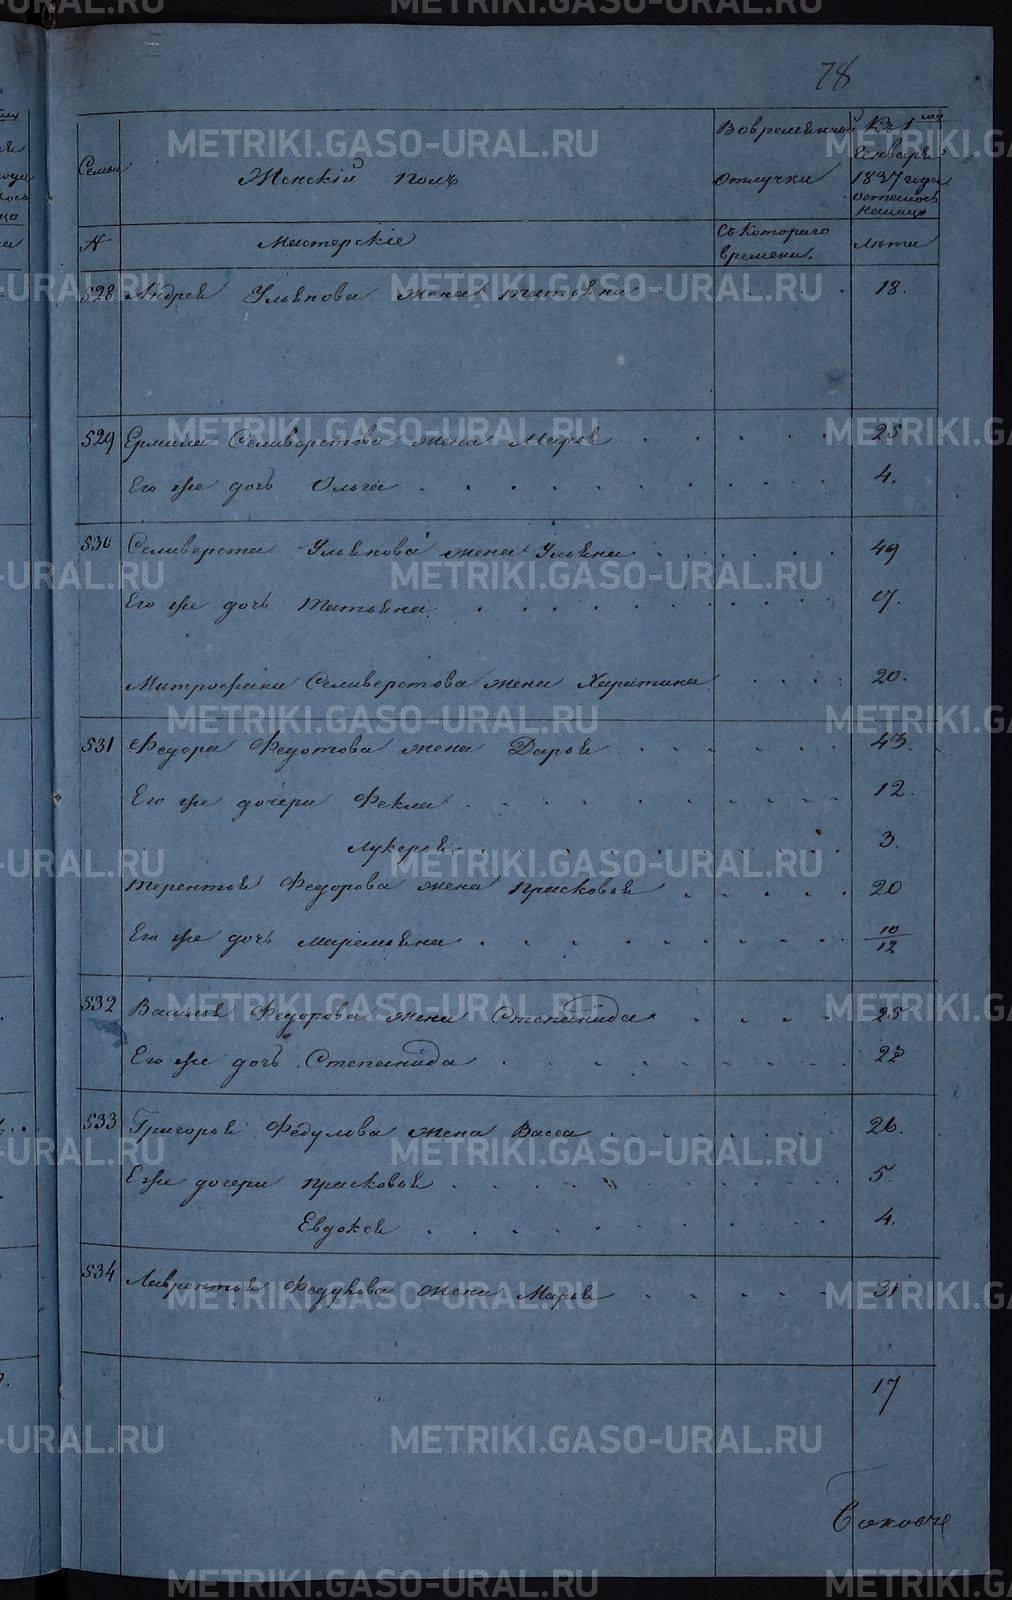 78
Семьи
Женскій полъ
Во временной отлучки
Къ 1му Генваря 1837 года осталось на лицо
№
Мастерскіе
Съ котораго времени.
лѣта
528 Андрея Ульянова жена Татьяна 18.
529 Ермила Селиверстова жена Марья 25
Его же дочь Ольга 4.
530 Селиверста Ульянова жена Ульяна 49
Его же дочь Татьяна 7.
Митрофана Селиверстова жена Харитина 20.
531 Федора Федотова жена Дарья 43.
Его же дочери Фекла 12.
Лукерья 3.
Терентья Федорова жена Прасковья 20
Его же дочь Маремьяна 10/12
532 Василья Федорова жена Степанида 25
Его же дочь Степанида 22
533 Григорья Федулова жена Васса 26.
Е же дочери Прасковья 5.
Евдокея 4.
534 Лаврентья Федулова жена Марья 31
17
METRIKI.GASO-URAL.RU